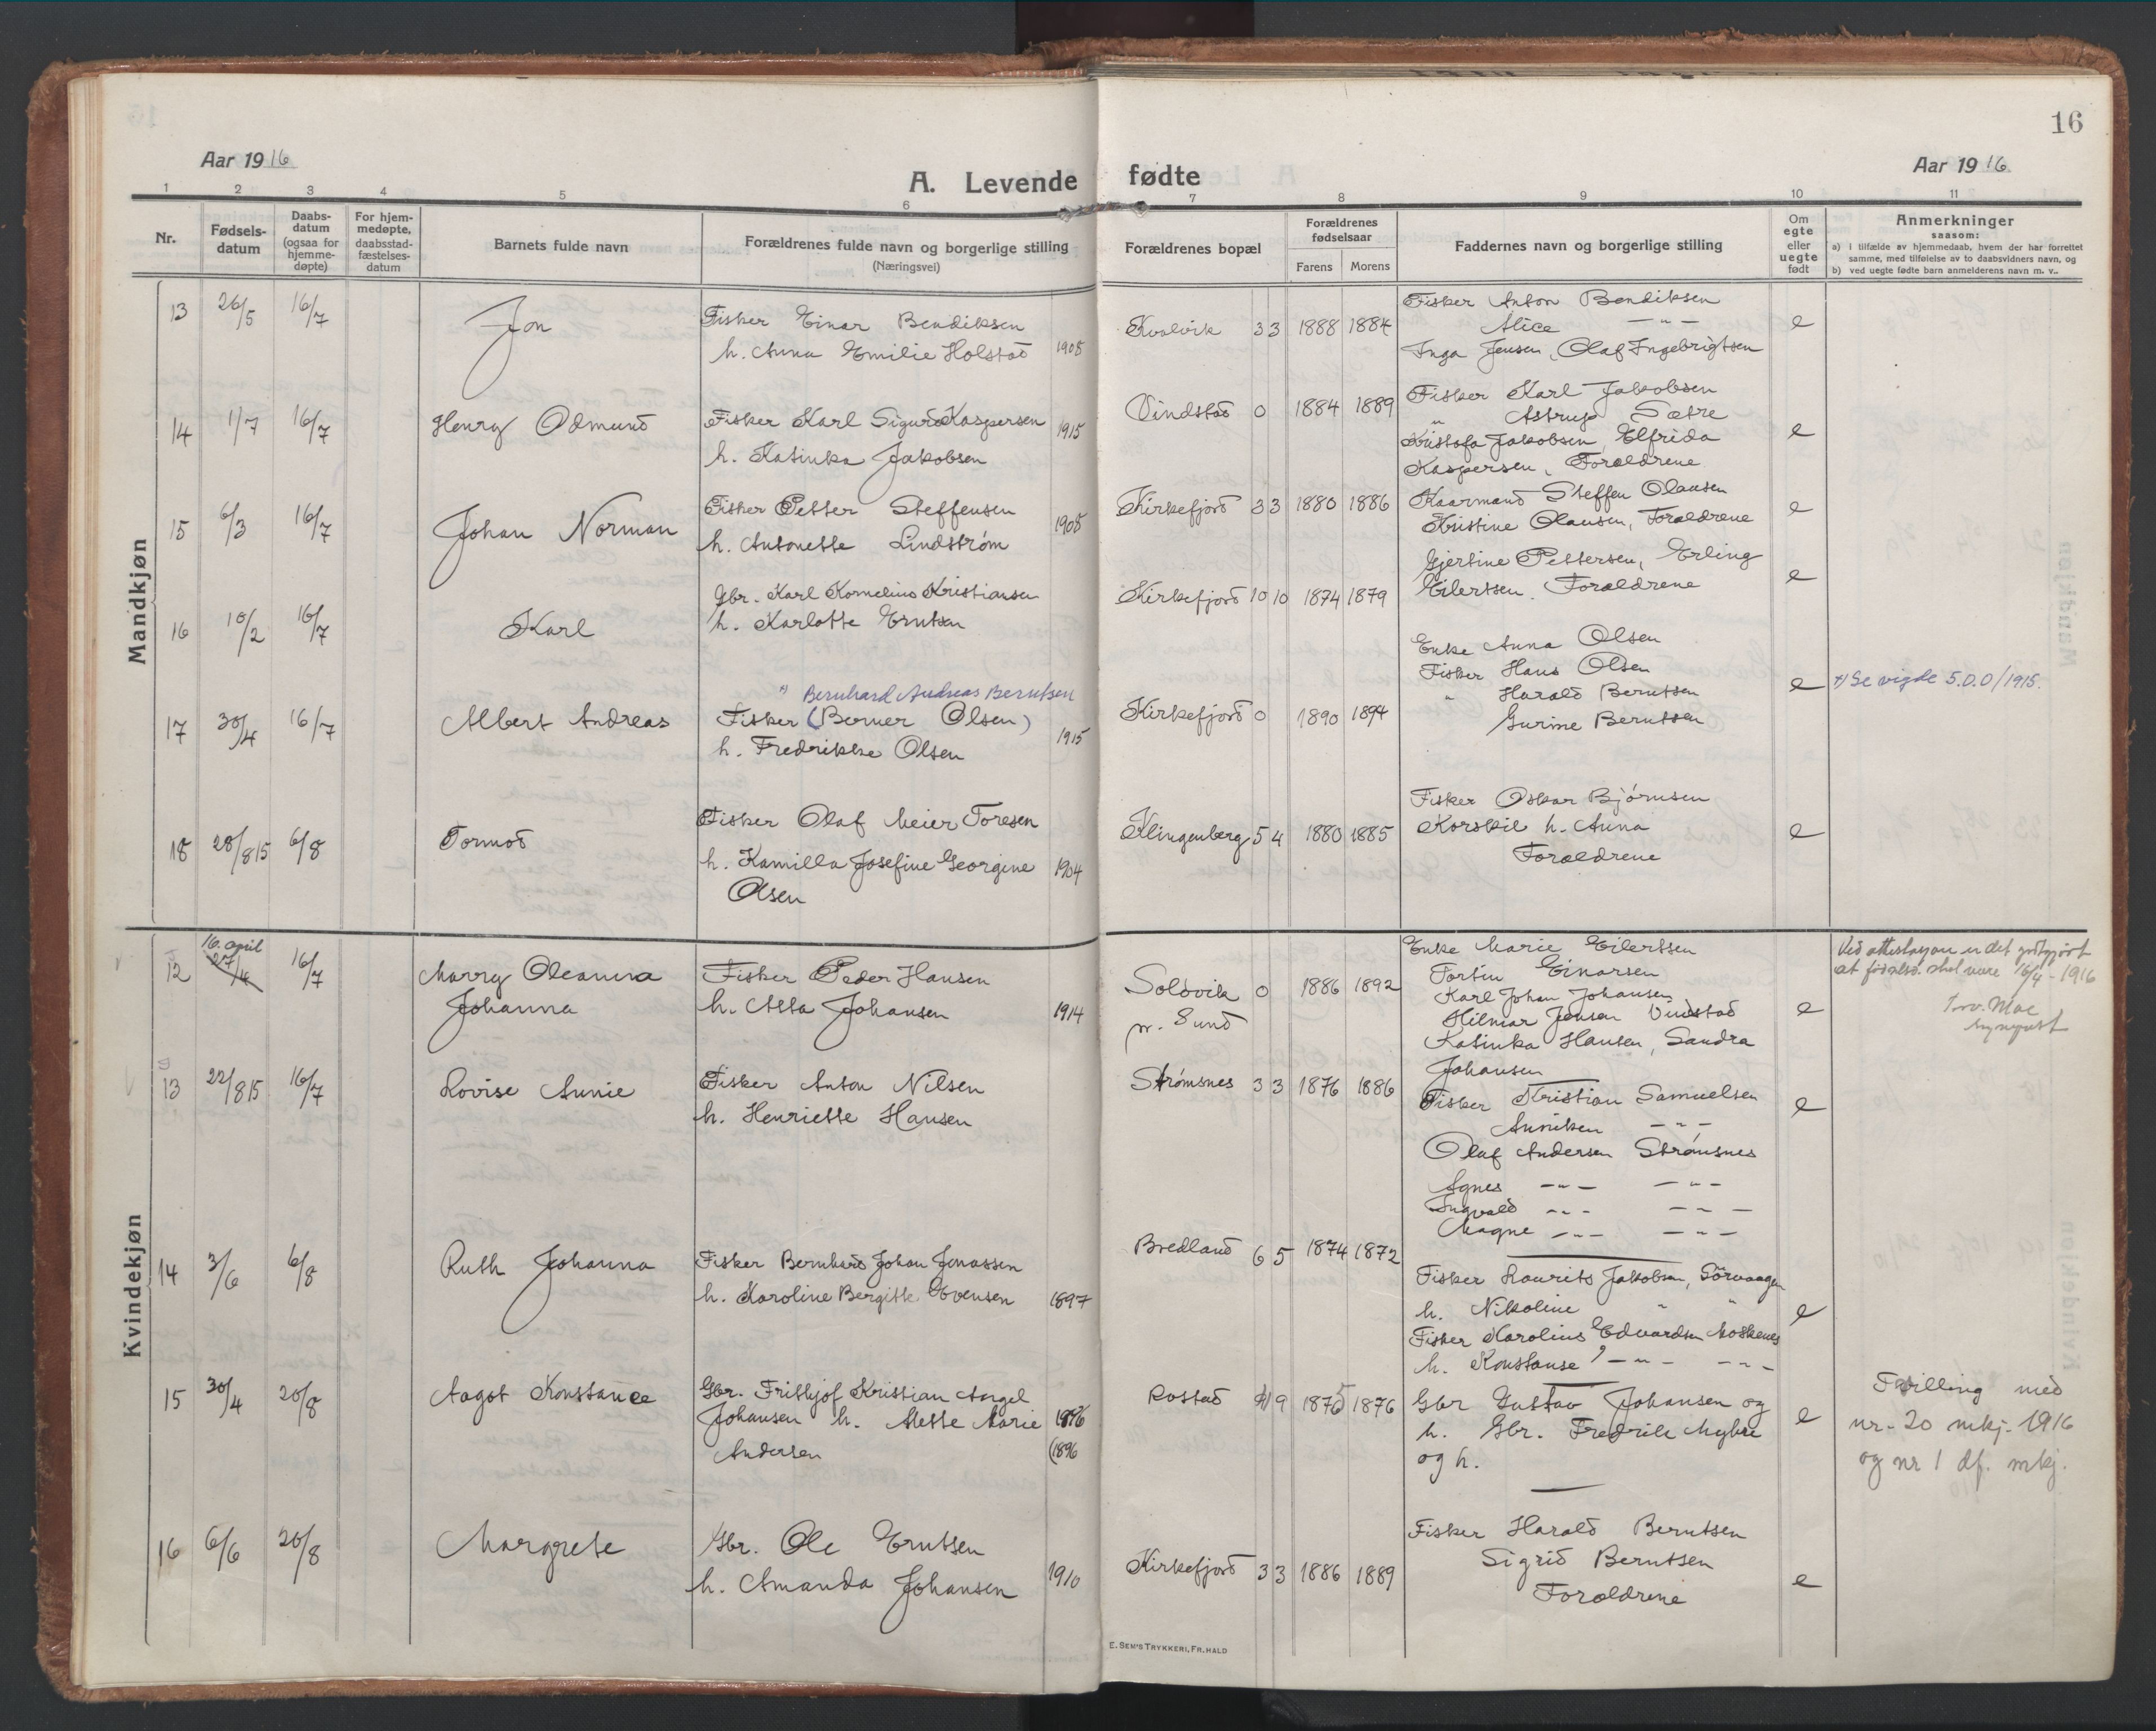 16
Aar 1916
A. Levende fødte
Aar 1916
1 2 3 4 5 6 7 8 9 10 11
Nr.
Fødsels-
datum
Daabs-
datum
(ogsaa for
hjemme-
døpte)
For hjem-
medøpte,
daabsstad-
fæstelses-
datum
Barnets fulde navn
Forældrenes fulde navn og borgerlige stilling
(Næringsvei)
Forældrenes bopæl
Forældrenes
fødselsaar
Farens Morens
Faddernes navn og borgerlige stilling
Om
egte
eller
uegte
født
Anmerkninger
saasom:
a) i tilfælde av hjemmedaab, hvem der har forrettet
samme, med tilføielse av to daabsvidners navn, og
b) ved uegte fødte barn anmelderens navn m. v..
Mandkjøn
13 26/5 16/7 Jon
Fisker Einar Bendiksen
h. Anna Emilie Holstad 1908
Kvalvik 3 3 1888 1884
Fisker Anton Bendiksen
Alice — " —
Inga Jensen, Olaf Ingebrigtsen
e
14 1/7 16/7 Henry Odmund
Fisker Karl Sigurd Kaspersen 1915
h. Katinka Jakobsen
Vindstad 0 1884 1889
Fisker Karl Jakobsen
" Astrup Sætre
Kristofa Jakobsen, Elfrida
Kaspersen, Forældrene
e
15 6/3 16/7 Johan Norman
Fisker Petter Steffensen 1908
h. Antonette Lindstrøm
Kirkefjord 3 3 1880 1886
Kaarmand Steffen Olausen
Kristine Olausen, Forældrene
e
16 10/2 16/7 Karl
Gbr. Karl Kornelius Kristiansen
h. Karlotte Erntsen
Kirkefjord 10 10 1874 1879
Gjertine Pettersen, Erling
Eilertsen. Forældrene
e
17 30/4 16/7 Albert Andreas
*) Bernhard Andreas Berntsen
Fisker (Berner Olsen)
h. Fredrikke Olsen 1915
Kirkefjord 0 1890 1894
Enke Anna Olsen
Fisker Hans Olsen
" Harald Berntsen
Gurine Berntsen
e
*) Se vigde 5.D.O/1915.
18 28/8 15 6/8 Tormod
Fisker Olaf Meier Toresen
h. Kamilla Josefine Georgine 1904
Olsen
Klingenberg 5 4 1880 1885
Fisker Oskar Bjørnsen
Korskil h. Anna
Forældrene
e
Kvindekjøn
16. april
12 27/4 16/7 Marry Oleanna
Johanna
Fisker Peder Hansen
h. Asta Johansen 1914
Soldvik 0 1886 1892
pr. Sund
Enke Marie Eilertsen
Torfin Einarsen
Karl Johan Johansen
Hilmar Jensen Vindstad
Katinka Hansen, Sandra
Johansen
e
Ved attestasjon er det godtgjort
at fødselsd. skal være 16/4 - 1916
13 22/8 15 16/7 Lovise Annie
Fisker Anton Nilsen
h. Henriette Hansen
Strømsnes 3 3 1876 1886
Fisker Kristian Samuelsen
Anniken — " —
Olaf Andersen Strømsnes
Agnes — " — — " —
Ingvald — " — — " —
Magne — " — — " —
e
14 3/6 6/8 Ruth Johanna
Fisker Bernhard Johan Jonassen
h. Karoline Bergitte Evensen 1897
Bredland 6 5 1874 1872
Fisker Laurits Jakobsen, Sørvaagen
h. Nikoline " "
Fisker Karolius Edvardsen Moskenes
h. Konstanse — " — — " —
e
15 30/4 20/8 Aagot Konstance
Gbr. Frithjof Kristian Angel
Johansen h. Mette Marie 1896
Andersen (1896
Rostad 9 1875 1876
Gbr Gustav Johansen og
h. Gbr. Fredrik Myhre
og h.
e
Trilling med
nr. 20 mkj. 1916
og nr 1 df. mkj.
16 6/6 20/8 Margrete
Gbr. Ole Erntsen
h. Amanda Johansen 1910
Kirkefjord 3 3 1886 1889
Fisker Harald Berntsen
Sigrid Berntsen
Forældrene
e
E. SEM'S TRYKKERI, FR.HALD